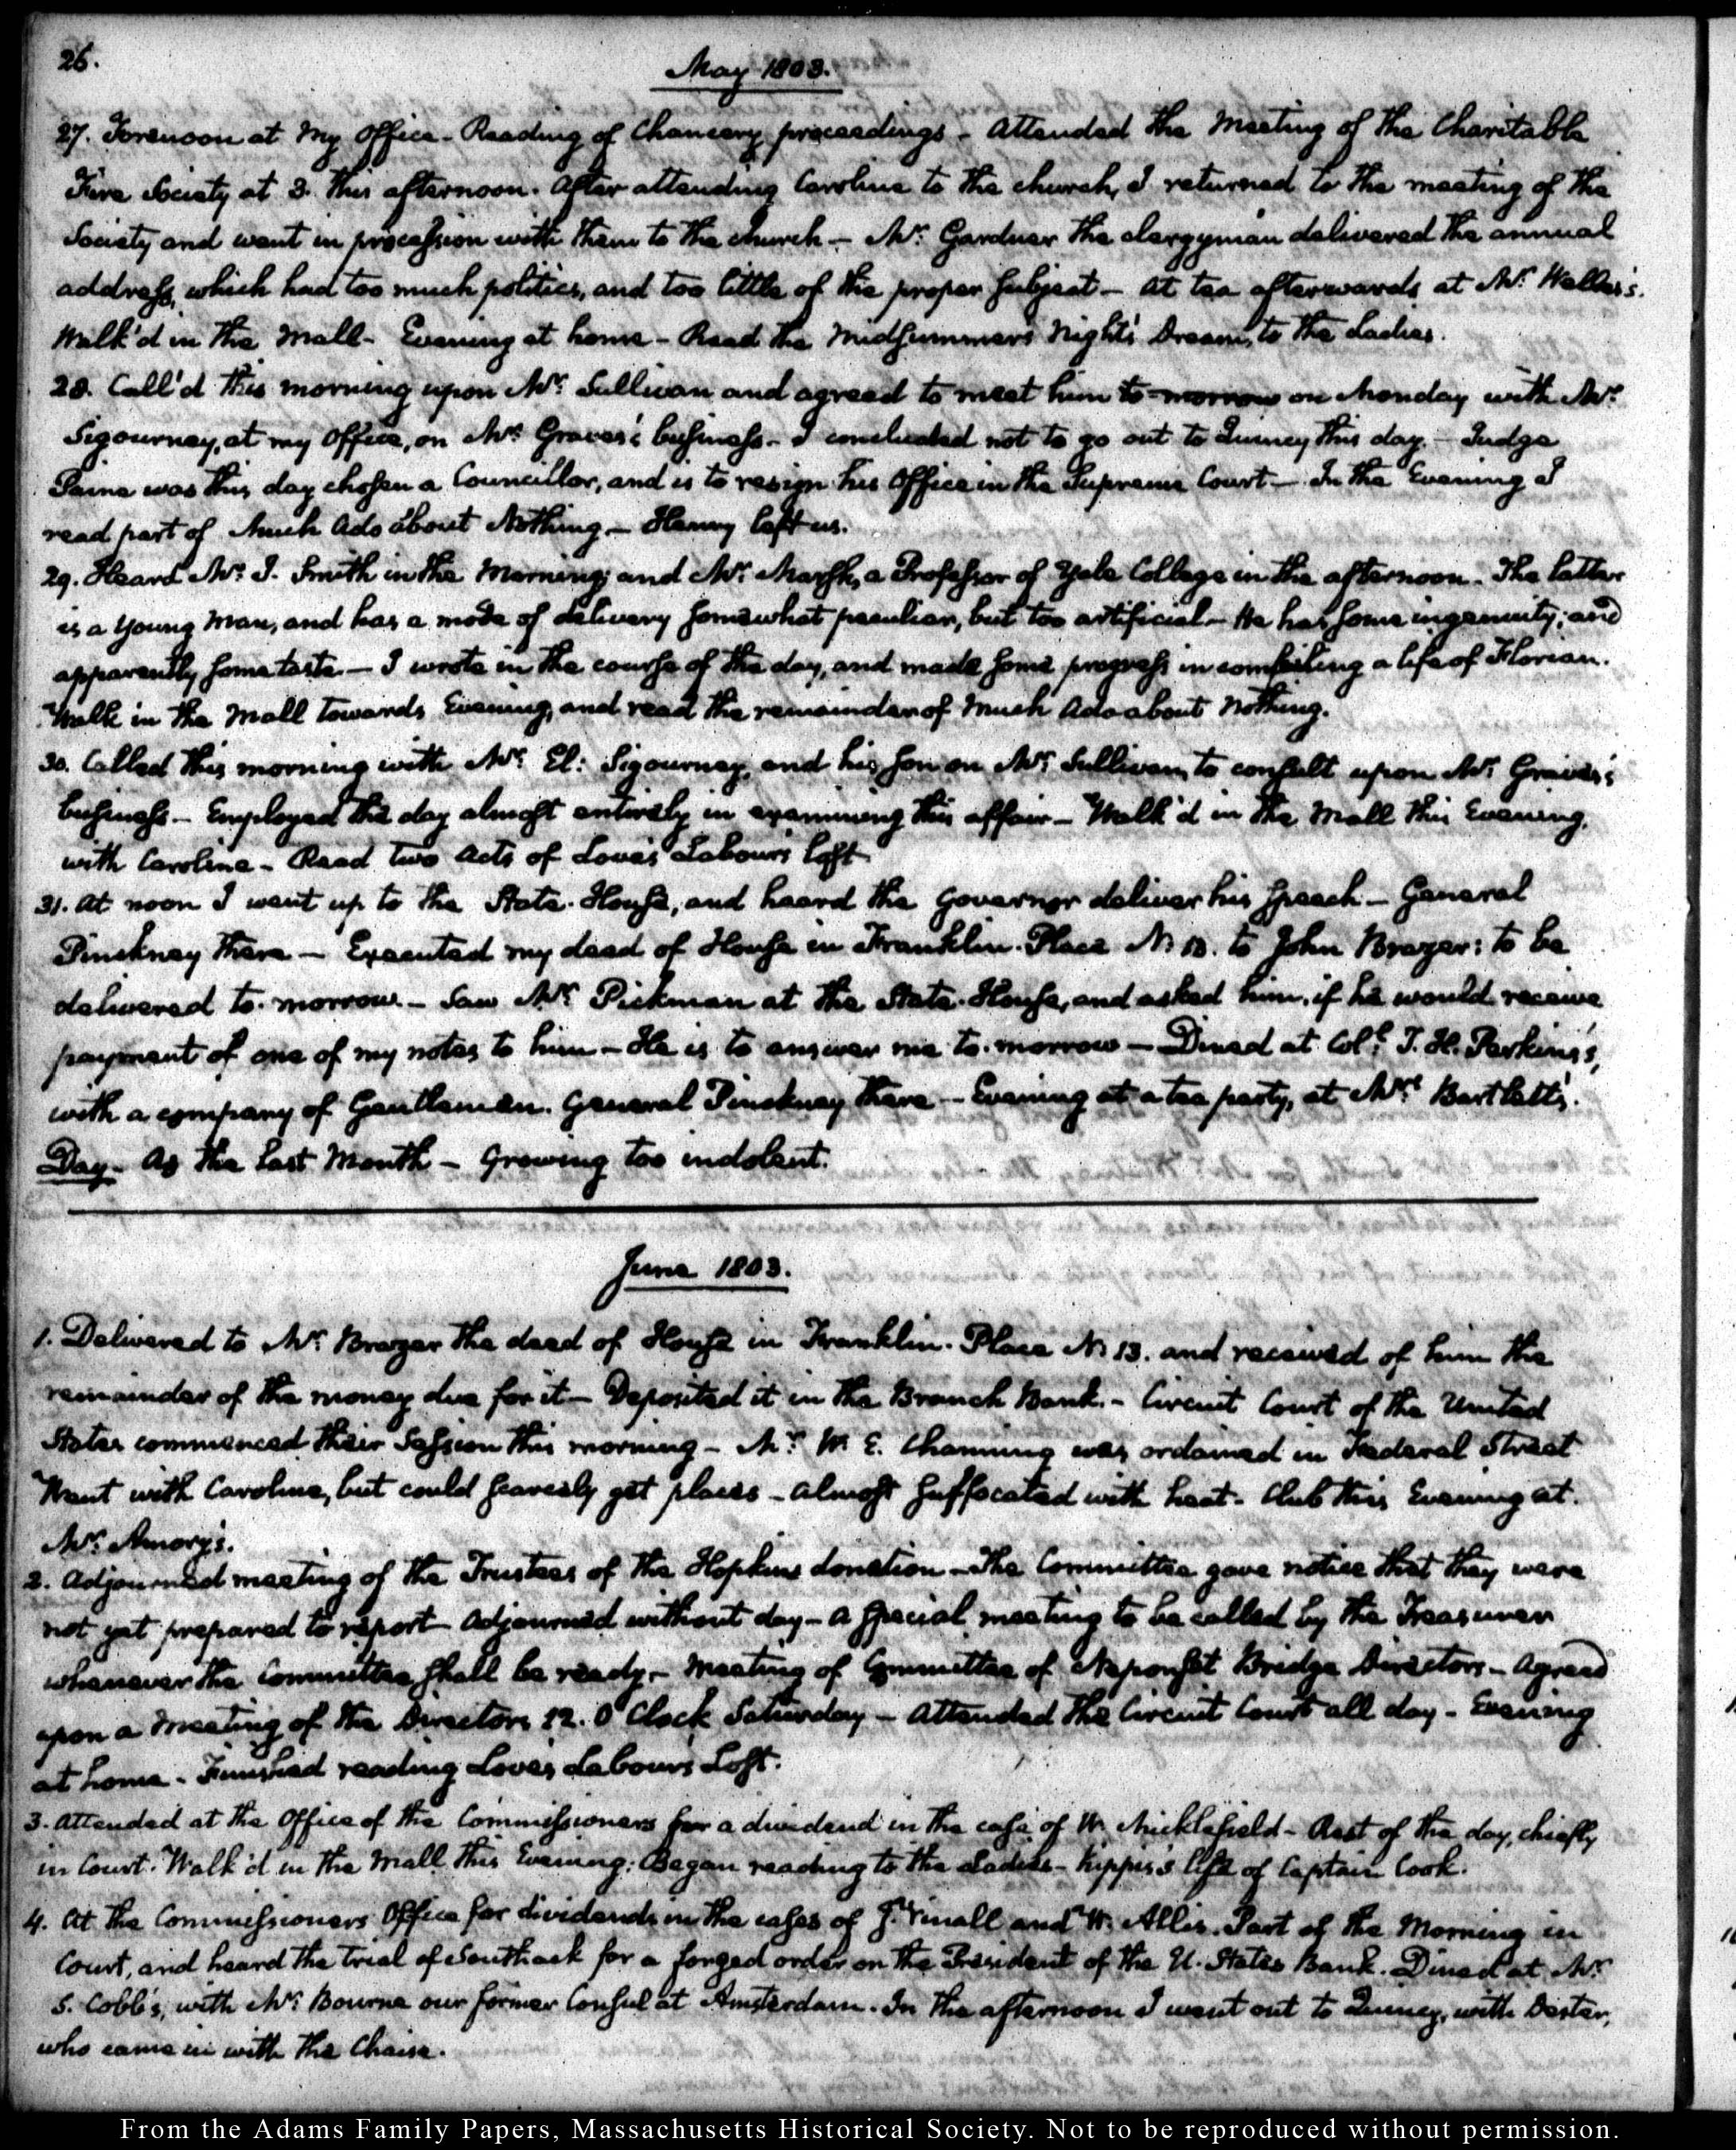 26.
May 1803.
27. Forenoon at my Office - Reading of Chancery proceedings - Attended the Meeting of the Charitable
Fire Society at 3. this afternoon. After attending Caroline to the church, I returned to the meeting of the
Society and went in procession with them to the church - Mr. Gardner the clergyman delivered the annual
address, which had too much politics, and too little of the proper subject - At tea afterwards at Mr.
Walk'd in the Mall - Evening at home - Read the Midsummer's Night's Dream, to the Ladies.
28. Call'd this morning upon Mr. Sullivan and agreed to meet him to-morrow on Monday with Mr.
Sigourney, at my Office, on Mr. Graves's business - I concluded not to go out to Quincy this day. - Judge
Paine was this day chosen a Councillor, and is to resign his Office in the Supreme Court - In the Evening I
read part of Much Ado about Nothing - left us.
29. Heard Mr. J. Smith in the Morning; and Mr. Marsh, a Professor of Yale College in the afternoon. The latter
is a young man, and has a mode of delivery somewhat peculiar, but too artificial - He has some ingenuity; and
apparently some taste - I wrote in the course of the day, and made some progress in compiling a life of Florian.
Walk in the Mall towards Evening, and read the remainder of Much Ado about Nothing.
30. Called this morning with Mr. El: Sigourney, and his son on Mr. Sullivan, to consult upon Mr. Graves's
business - Employed the day almost entirely in examining this affair - Walk'd in the Mall this Evening,
with Caroline - Read two Acts of Love's Labour's lost
31. At noon I went up to the State-House, and heard the Governor deliver his speech - General
Pinckney there - Executed my deed of House in Franklin-Place N. 13. to John Brazer: to be
delivered to-morrow - Saw Mr. Pickman at the State-House, and asked him, if he would receive
payment of one of my notes to him - He is to answer me to-morrow - Dined at Coll. T. H. Perkins's,
with a company of Gentlemen. General Pinckney there - Evening at a tea party, at Mrs. Bartlett's.
Day - As the last Month - Growing too indolent.
June 1803.
1. Delivered to Mr. Brazer the deed of House in Franklin-Place N. 13. and received of him the
remainder of the money due for it - Deposited it in the Branch Bank. - Circuit Court of the United
States commenced their Session this morning - Mr. W. E. Channing was ordained in Federal Street
Went with Caroline, but could scarcely get places - almost suffocated with heat - Club this Evening at
Mr. Amory's.
2. Adjourned meeting of the Trustees of the Hopkins donation - The Committee gave notice that they were
not yet prepared to report - Adjourned without day - A special meeting to be called by the Treasurer
whenever the Committee shall be ready - Meeting of Committee of Neponset Bridge Directors - Agreed
upon a Meeting of the Directors 12. O'Clock Saturday - Attended the Circuit Court all day - Evening
at home - Finished reading Love's Labour's Lost.
3. Attended at the Office of the Commissioners for a dividend in the case of W. Micklefield - Rest of the day, chiefly
in Court. Walk'd in the Mall this Evening: Began reading to the Ladies - Kippis's life of Captain Cook.
4. At the Commissioners Office for dividends in the cases of J. Vinall and W. Allis. Part of the Morning in
Court, and heard the trial of Southack for a forged order on the President of the U. States Bank. Dined at Mr.
S. Cobb's, with Mr. Bourne our former Consul at Amsterdam. In the afternoon I went out to Quincy, with Dexter,
who came in with the Chaise.
From the Adams Family Papers, Massachusetts Historical Society. Not to be reproduced without permission.